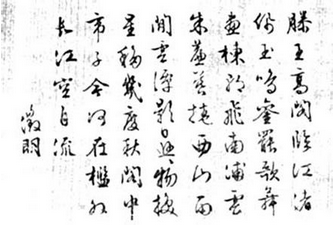 滕王高閣臨江渚
佩玉鳴鑾罷歌舞
畫棟朝飛南浦雲
朱簾暮捲西山雨
閒雲潭影日悠々物換
星移幾度秋閣中
帝子今何在檻外
長江空自流
徵明